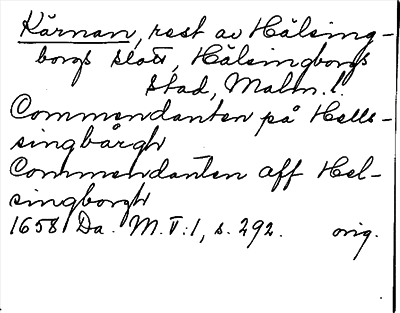 Kärnan, rest av Hälsing-
borgs slott, Hälsingborgs
stad, Malm. l.
Commendanten på Hells-
singbårgh
Commendanten aff Hel-
singborgh
1658 Da. M. V:1, s. 292. orig.